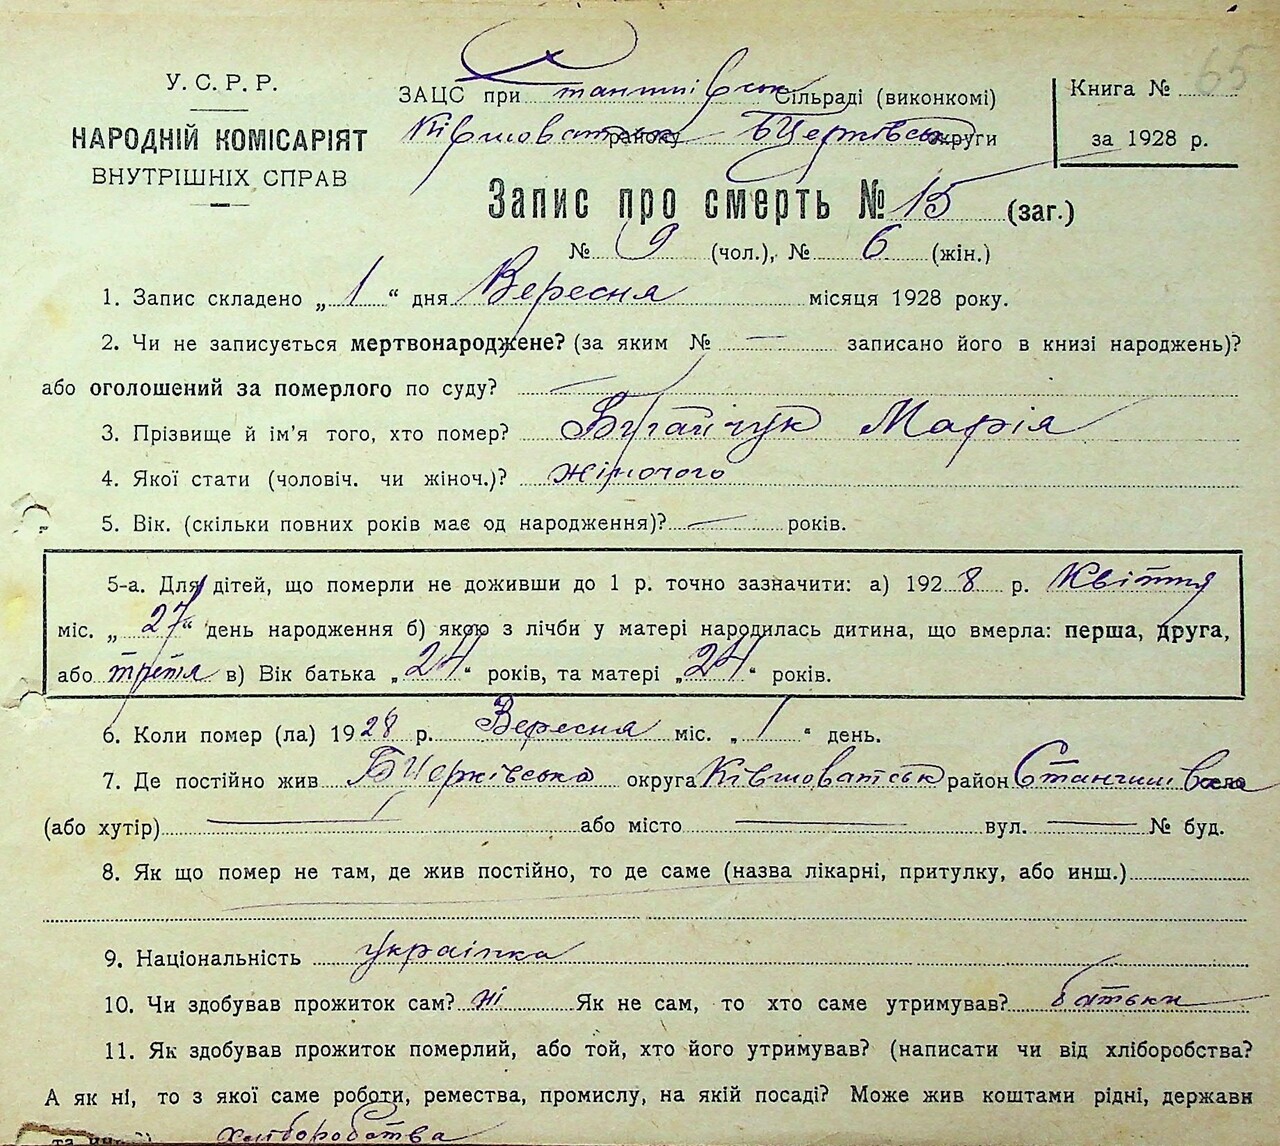 65
У. С. Р. Р.
НАРОДНІЙ КОМІСАРІЯТ
ВНУТРІШНІХ СПРАВ
ЗАЦС при Станишівськ Сільраді (виконкомі)
Ківшоватськ району БЦерківськ округи
Книга №
за 1928 р.
Запис про смерть № 15 (заг.)
№ 9 (чол.), № 6 (жін.)
1. Запис складено „ 1 “ дня Вересня місяця 1928 року.
2. Чи не записується мертвонароджене? (за яким № — записано його в книзі народжень)?
або оголошений за померлого по суду? —
3. Прізвище й ім'я того, хто помер? Бугайчук Марія
4. Якої стати (чоловіч. чи жіноч.)? жіночого
5. Вік. (скільки повних років має од народження)? — років.
5-а. Для дітей, що померли не доживши до 1 р. точно зазначити: а) 1928 р. Квітня
міс. „ 27 “ день народження б) якою з лічби у матері народилась дитина, що вмерла: перша, друга,
або третя в) Вік батька „ 24 “ років, та матері „ 24 “ років.
6. Коли помер (ла) 1928 р. Вересня міс. „ 1 “ день.
7. Де постійно жив БЦерківська округа Ківшоватськ район Станишівка село
(або хутір) — або місто — вул. — № буд.
8. Як що помер не там, де жив постійно, то де саме (назва лікарні, притулку, або инш.)
9. Національність українка
10. Чи здобував прожиток сам? ні Як не сам, то хто саме утримував? батьки
11. Як здобував прожиток померлий, або той, хто його утримував? (написати чи від хліборобства?
А як ні, то з якої саме роботи, ремества, промислу, на якій посаді? Може жив коштами рідні, держави
та инш.) хліборобства